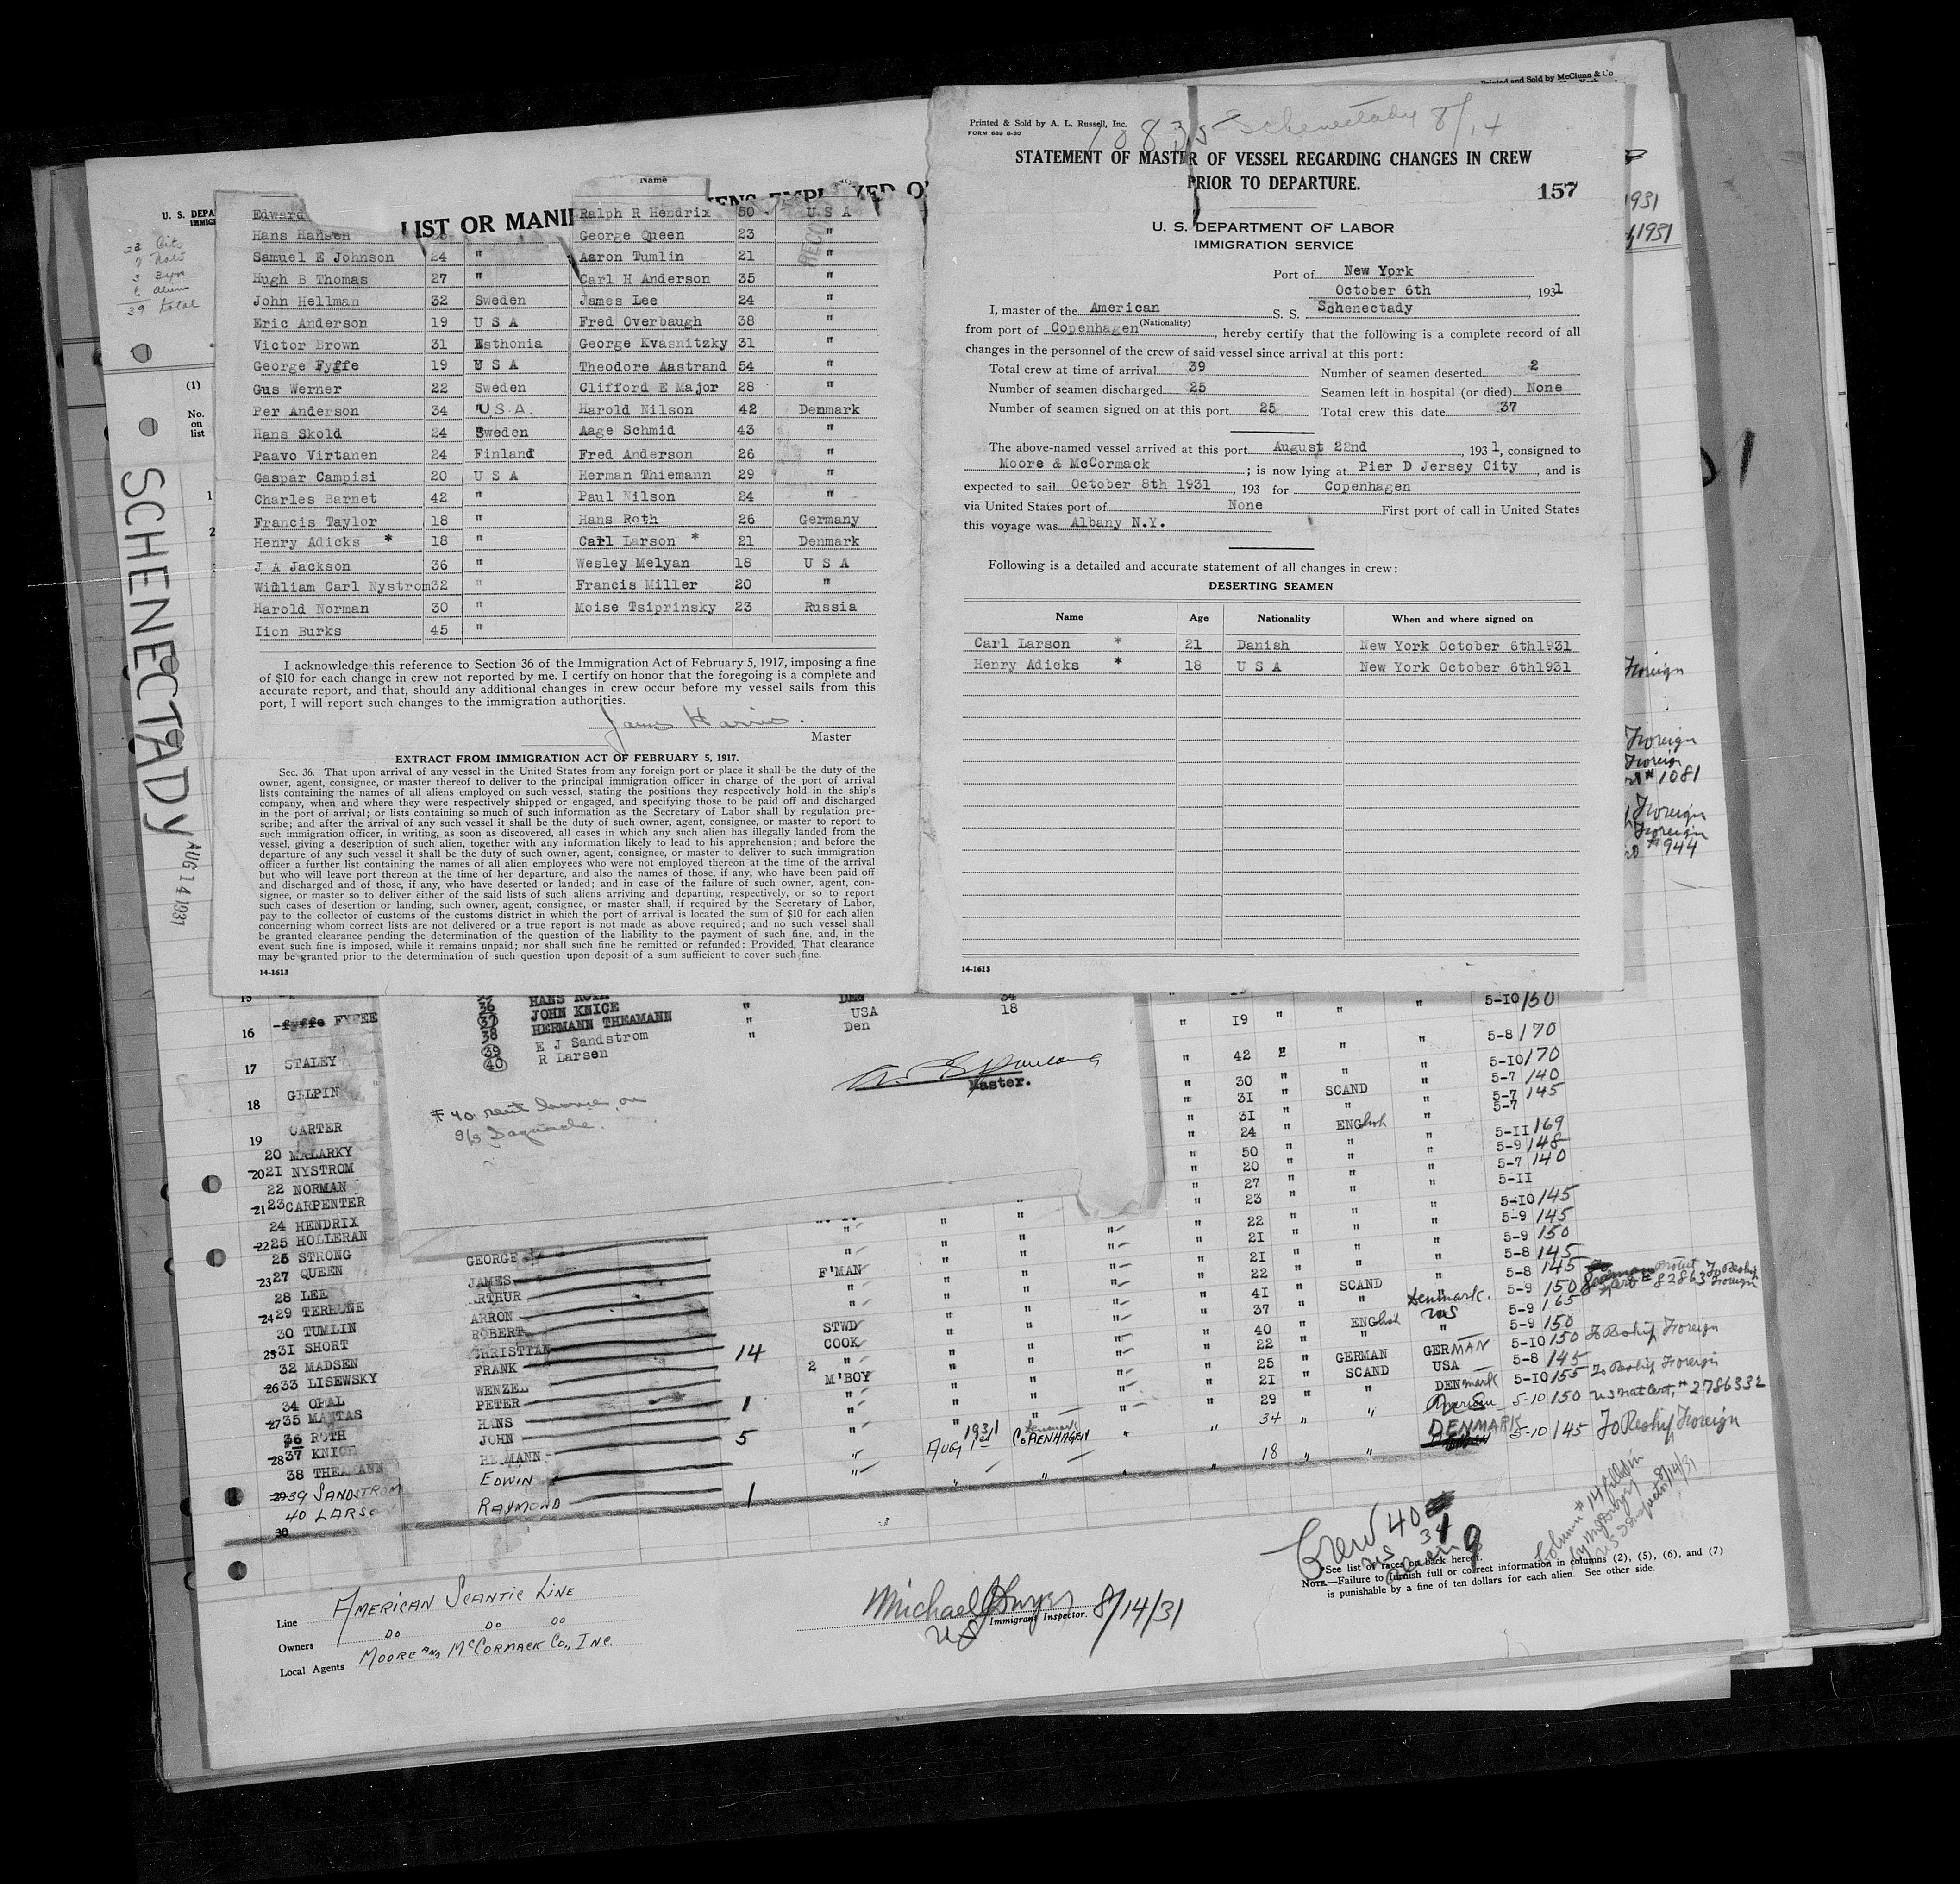 Printed and Sold by McClunn & Co
U. S. DEPA
IMMIG
(1)
No.
on
list
1
2
SCHENECTADY
AUG 14 1931
39 total
LIST OR MANI
ENS EMPLOYED O
Name
Edward Ralph R Hendrix 50 U S A
Hans Hansen George Queen 23 "
Samuel E Johnson 24 " Aaron Tumlin 21 "
Hugh B Thomas 27 " Carl H Anderson 35 "
John Hellman 32 Sweden James Lee 24 "
Eric Anderson 19 U S A Fred Overbaugh 38 "
Victor Brown 31 Esthonia George Kvasnitzky 31 "
George Fyffe 19 U S A Theodore Aastrand 54 "
Gus Werner 22 Sweden Clifford E Major 28 "
Per Anderson 34 "U.S.A. Harold Nilson 42 Denmark
Hans Skold 24 Sweden Aage Schmid 43 "
Paavo Virtanen 24 Finland Fred Anderson 26 "
Gaspar Campisi 20 U S A Herman Thiemann 29 "
Charles Barnet 42 " Paul Nilson 24 "
Francis Taylor 18 " Hans Roth 26 Germany
Henry Adicks * 18 " Carl Larson * 21 Denmark
J A Jackson 36 " Wesley Melyan 18 U S A
William Carl Nystrom 32 " Francis Miller 20 "
Harold Norman 30 " Moise Tsiprinsky 23 Russia
Iion Burks 45 "
I acknowledge this reference to Section 36 of the Immigration Act of February 5, 1917, imposing a fine
of $10 for each change in crew not reported by me. I certify on honor that the foregoing is a complete and
accurate report, and that, should any additional changes in crew occur before my vessel sails from this
port, I will report such changes to the immigration authorities.
James Harris.
Master
EXTRACT FROM IMMIGRATION ACT OF FEBRUARY 5, 1917.
Sec. 36. That upon arrival of any vessel in the United States from any foreign port or place it shall be the duty of the
owner, agent, consignee, or master thereof to deliver to the principal immigration officer in charge of the port of arrival
lists containing the names of all aliens employed on such vessel, stating the positions they respectively hold in the ship's
company, when and where they were respectively shipped or engaged, and specifying those to be paid off and discharged
in the port of arrival; or lists containing so much of such information as the Secretary of Labor shall by regulation pre-
scribe; and after the arrival of any such vessel it shall be the duty of such owner, agent, consignee, or master to report to
such immigration officer, in writing, as soon as discovered, all cases in which any such alien has illegally landed from the
vessel, giving a description of such alien, together with any information likely to lead to his apprehension; and before the
departure of any such vessel it shall be the duty of such owner, agent, consignee, or master to deliver to such immigration
officer a further list containing the names of all alien employees who were not employed thereon at the time of the arrival
but who will leave port thereon at the time of her departure, and also the names of those, if any, who have been paid off
and discharged and of those, if any, who have deserted or landed; and in case of the failure of such owner, agent, con-
signee, or master so to deliver either of the said lists of such aliens arriving and departing, respectively, or so to report
such cases of desertion or landing, such owner, agent, consignee, or master shall, if required by the Secretary of Labor,
pay to the collector of customs of the customs district in which the port of arrival is located the sum of $10 for each alien
concerning whom correct lists are not delivered or a true report is not made as above required; and no such vessel shall
be granted clearance pending the determination of the question of the liability to the payment of such fine, and, in the
event such fine is imposed, while it remains unpaid; nor shall such fine be remitted or refunded: Provided, That clearance
may be granted prior to the determination of such question upon deposit of a sum sufficient to cover such fine.
14-1613
Printed & Sold by A. L. Russell, Inc.
FORM 689 6-30
10835 Schenectady 8/14
STATEMENT OF MASTER OF VESSEL REGARDING CHANGES IN CREW
PRIOR TO DEPARTURE.
157
U. S. DEPARTMENT OF LABOR
IMMIGRATION SERVICE
Port of New York
October 6th, 1931
I, master of the American S. S. Schenectady
(Nationality)
from port of Copenhagen, hereby certify that the following is a complete record of all
changes in the personnel of the crew of said vessel since arrival at this port:
Total crew at time of arrival 39 Number of seamen deserted 2
Number of seamen discharged 25 Seamen left in hospital (or died) None
Number of seamen signed on at this port 25 Total crew this date 37
The above-named vessel arrived at this port August 22nd, 1931, consigned to
Moore & McCormack; is now lying at Pier D Jersey City, and is
expected to sail October 8th 1931, 193 for Copenhagen
via United States port of None First port of call in United States
this voyage was Albany N.Y.
Following is a detailed and accurate statement of all changes in crew:
DESERTING SEAMEN
Name Age Nationality When and where signed on
Carl Larson * 21 Danish New York October 6th1931
Henry Adicks * 18 U S A New York October 6th1931
14-1613
1931
1931
Foreign
Foreign
Foreign
1081
Foreign
Foreign
944
HANS ROTH DEN 34
36 JOHN KNICE " USA 18
37 HERMANN THEAMANN " Den
38 E J Sandstrom "
39 R Larsen
40
Master.
15 5-10 150
16 fyffe FYFEE " 19 " " " 5-8 170
17 STALEY " 42 " " " 5-10 170
18 GILPIN " 30 " " " 5-7 140
" 31 " SCAND " 5-7 145
19 CARTER " 31 " " " 5-7
20 MALARKY " 24 " English " 5-11 169
21 NYSTROM " 50 " " " 5-9 148
22 NORMAN " 20 " " " 5-7 140
23 CARPENTER " 27 " " " 5-11
24 HENDRIX " 23 " " " 5-10 145
25 HOLLERAN " 22 " " " 5-9 145
26 STRONG GEORGE " 21 " " " 5-9 150
27 QUEEN JAMES F'MAN " 21 " " " 5-8 145
28 LEE ARTHUR " 22 " " " 5-8 145
29 TERHUNE ARRON " 41 " SCAND Denmark. 5-9 150
30 TUMLIN ROBERT STWD " 37 " " US 5-9 165
31 SHORT CHRISTIAN COOK " 40 " English " 5-9 150
32 MADSEN FRANK 14 2 " 22 " " GERMAN 5-10 150 To Reship Foreign
33 LISEWSKY WENZEL M'BOY " 25 " GERMAN USA 5-8 145
34 OPAL PETER " 21 " SCAND DENmark 5-10 155 To Reship Foreign
35 MANTAS HANS 1 " 29 " " US 5-10 150 US Nat Cert, # 2786332
36 ROTH JOHN " 34 " " DENMARK 5-10 145 To Reship Foreign
37 KNICE HERMANN 5 " AUG 1st 1931 COPENHAGEN Denmark " 18 " "
38 THEAMANN EDWIN
39 SANDSTROM RAYMOND 1
40 LARSON
30
Crew 40
US 31
Alien 9
Column # 14 filled in
US Inspector 8/14/31
See list of races on back hereof.
NOTE.—Failure to furnish full or correct information in columns (2), (5), (6), and (7)
is punishable by a fine of ten dollars for each alien. See other side.
Line AMERICAN SCANTIC LINE
Owners DO DO DO
Local Agents MOORE AND McCORMACK CO., INC.
Michael J Dwyer 8/14/31
US Immigrant Inspector.